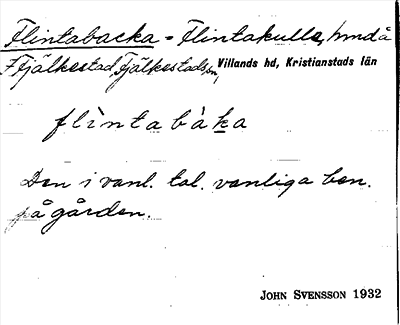 Flintabacka = Flintakulla, hmdå
Fjälkestad, Fjälkestads sn, Villands hd, Kristianstads län
flìntabàka
Den i vanl. tal. vanliga ben.
på gården.
JOHN SVENSSON 1932